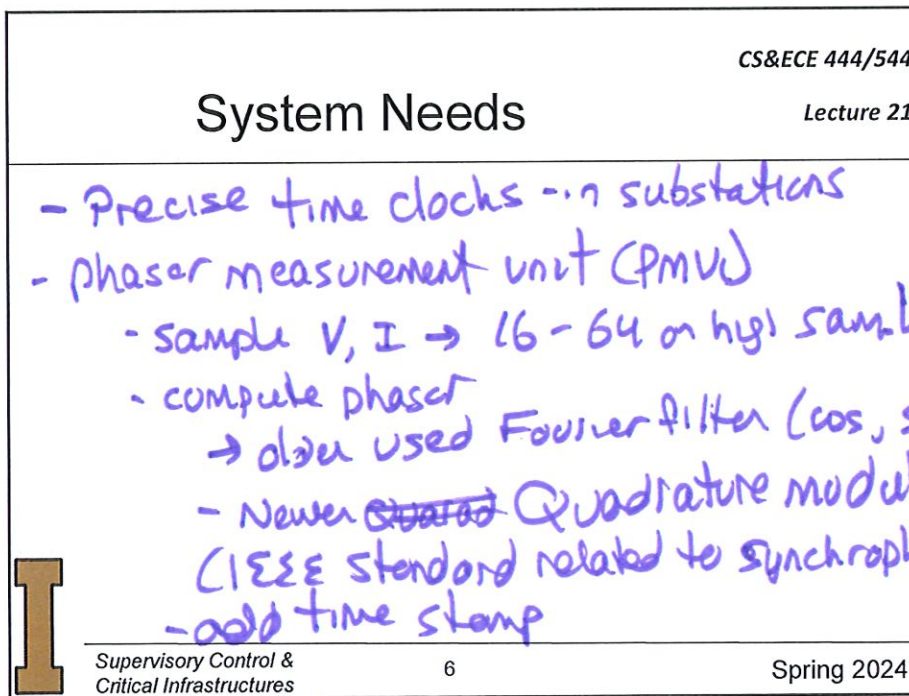 CS&ECE 444/544
System Needs
Lecture 21
- Precise time clocks - in substations
- phasor measurement unit (PMU)
- sample V, I → 16 - 64 or high samp
- compute phasor
→ older used Fourier filter (cos, s
- Newer Quadrature modul
(IEEE standard related to synchroph
- add time stamp
I
Supervisory Control &
Critical Infrastructures
6
Spring 2024